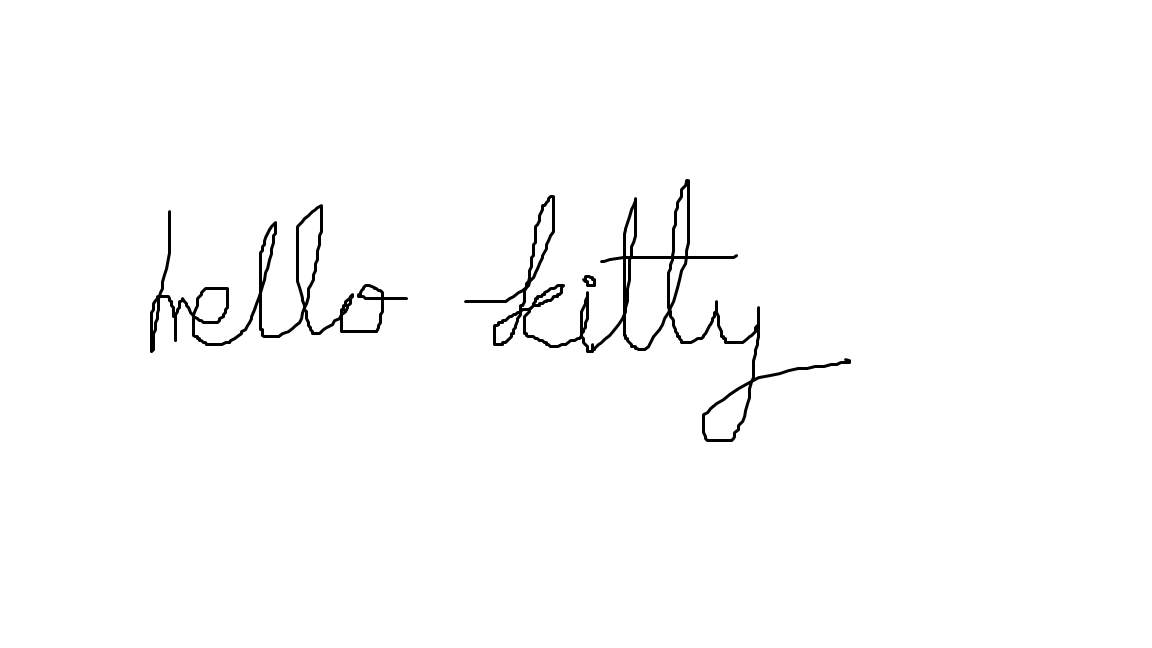 hello kitty